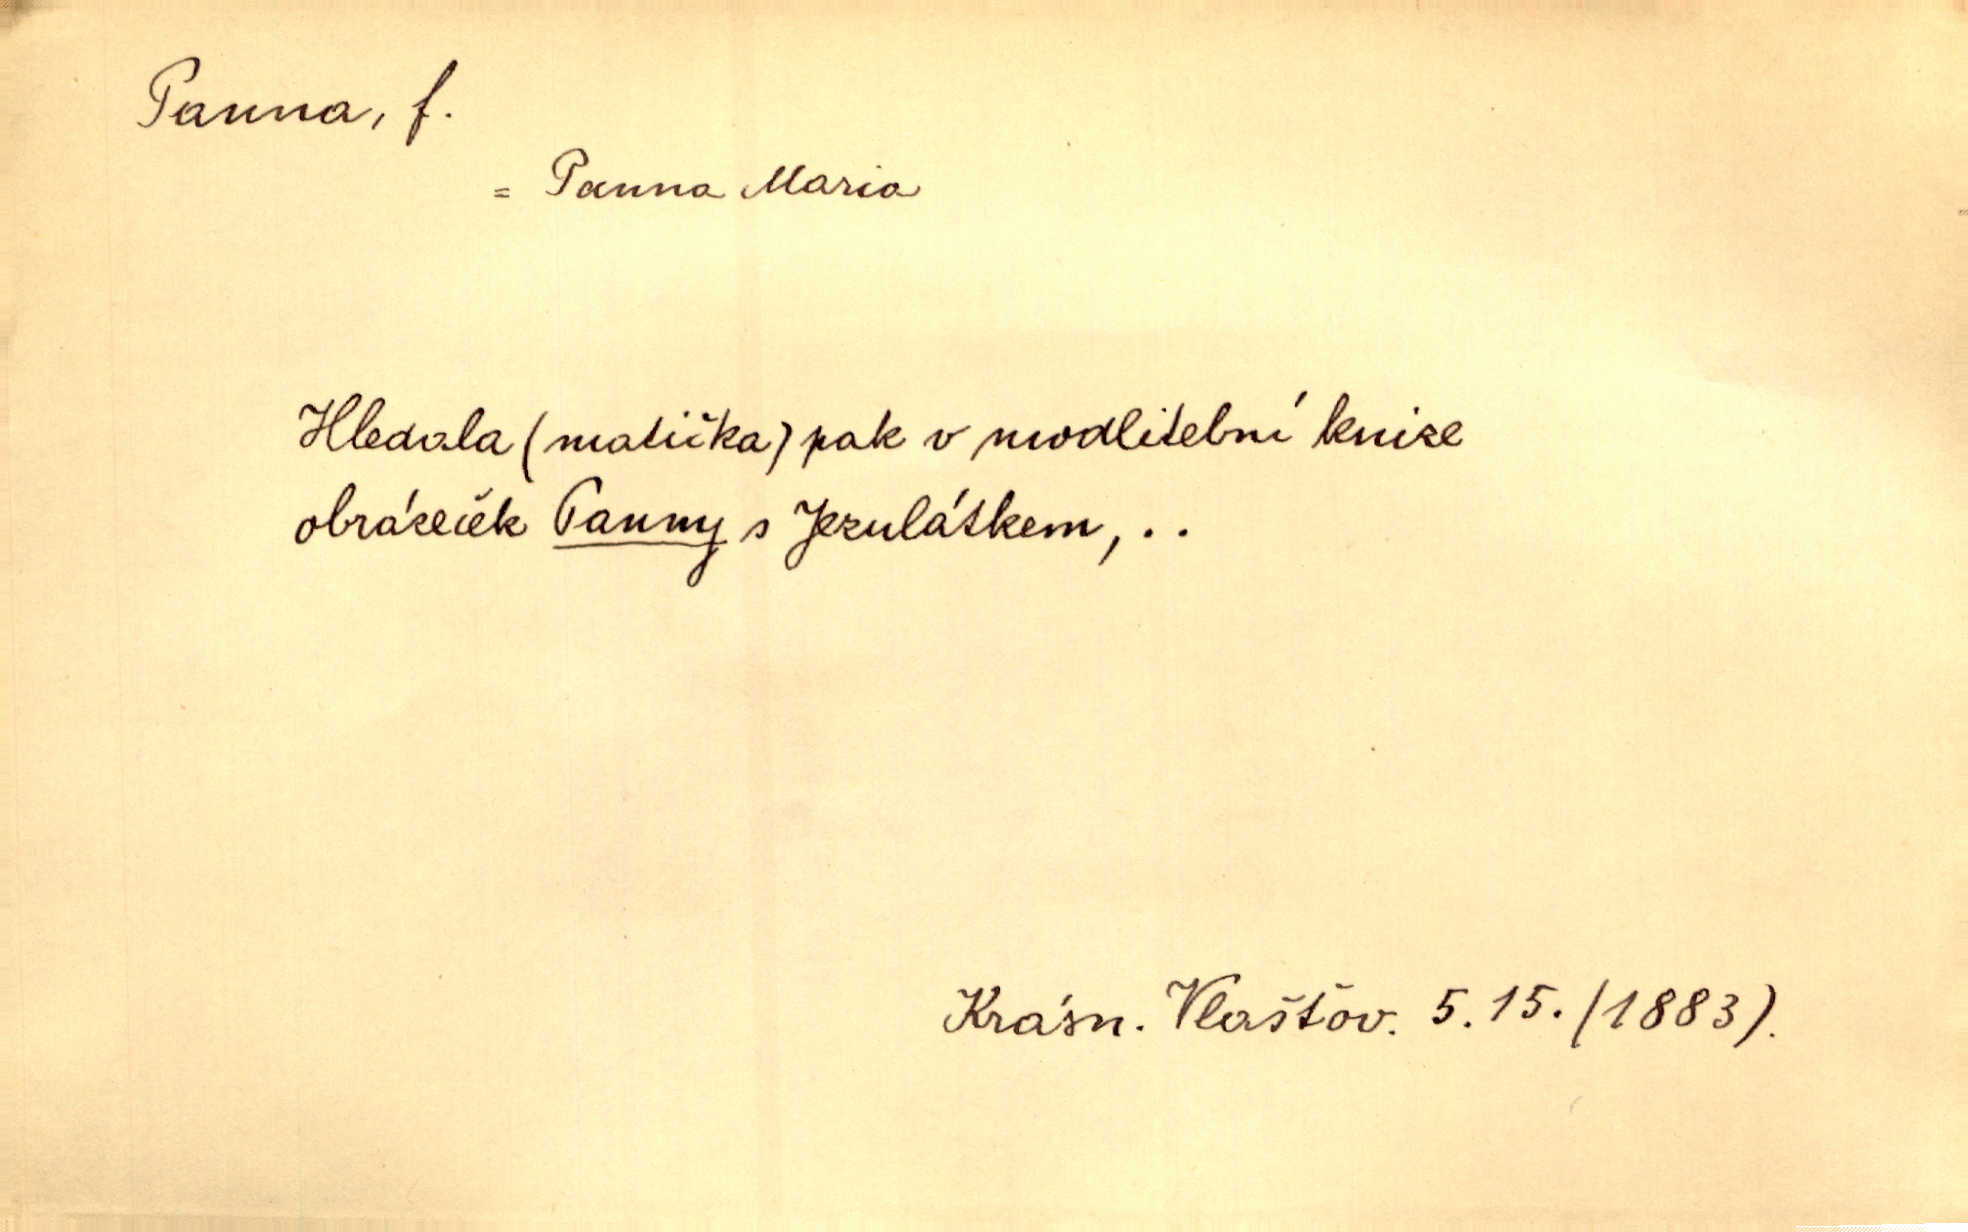 Panna, f.
= Panna Maria
Hledala (matička) pak v modlitební knize
obrázeček Panny s Jezulátkem, . .
Krásn. Vlaštov. 5. 15. (1883).